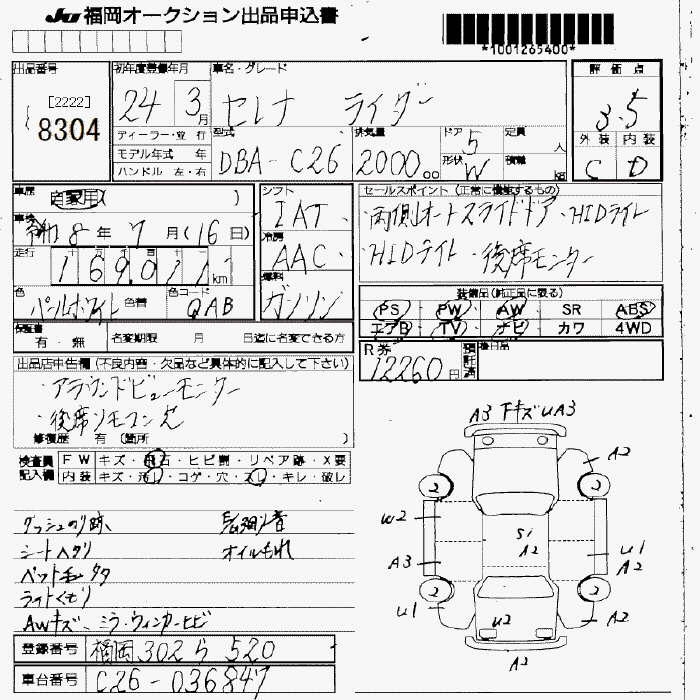 JU 福岡オークション出品申込書
*1001265400*
出品番号
[2222]
8304
初年度登録年月
24 3月
車名・グレード
セレナ ライダー
評価点
3.5
外装 内装
C D
ディーラー・並行
モデル年式 年
ハンドル 左・右
型式
DBA-C26
排気量
2000cc
ドア
5
形状
W
定員
人
積載
kg
車歴
自家用( )
車検
令和 8年 7月(16日)
走行
十 万 千 百 十 一
169,011 km
色
パールホワイト 色替
色コード
QAB
シフト
IAT
冷房
AAC
燃料
ガソリン
セールスポイント(正常に機能するもの)
両側オートスライドドア・HIDライト
HIDライト・後席モニター
装備品(純正品に限る)
PS PW AW SR ABS
エアB TV ナビ カワ 4WD
保証書
有・無
名変期限 月 日迄に名変できる方
R券
12260円
預託済
後日品
出品店申告欄(不良内容・欠品など具体的に記入して下さい)
・アラウンドビューモニター
・後席リモコン欠
修復歴 有(箇所 )
検査員記入欄
FW キズ・飛石・ヒビ割・リペア跡・X要
内装 キズ・汚レ・コゲ・穴・スレ・キレ・破レ
ダッシュのり跡
シートヘタリ
オイルもれ
ペット毛
ライトくもり
AWキズ ミラーウィンカーヒビ
登録番号 福岡302ら520
車台番号 C26-036847
A3 下キズ UA3
A2
2 2
W2
Si
A2
U1
A2
A3
2 2
U1
U2
A2
A2